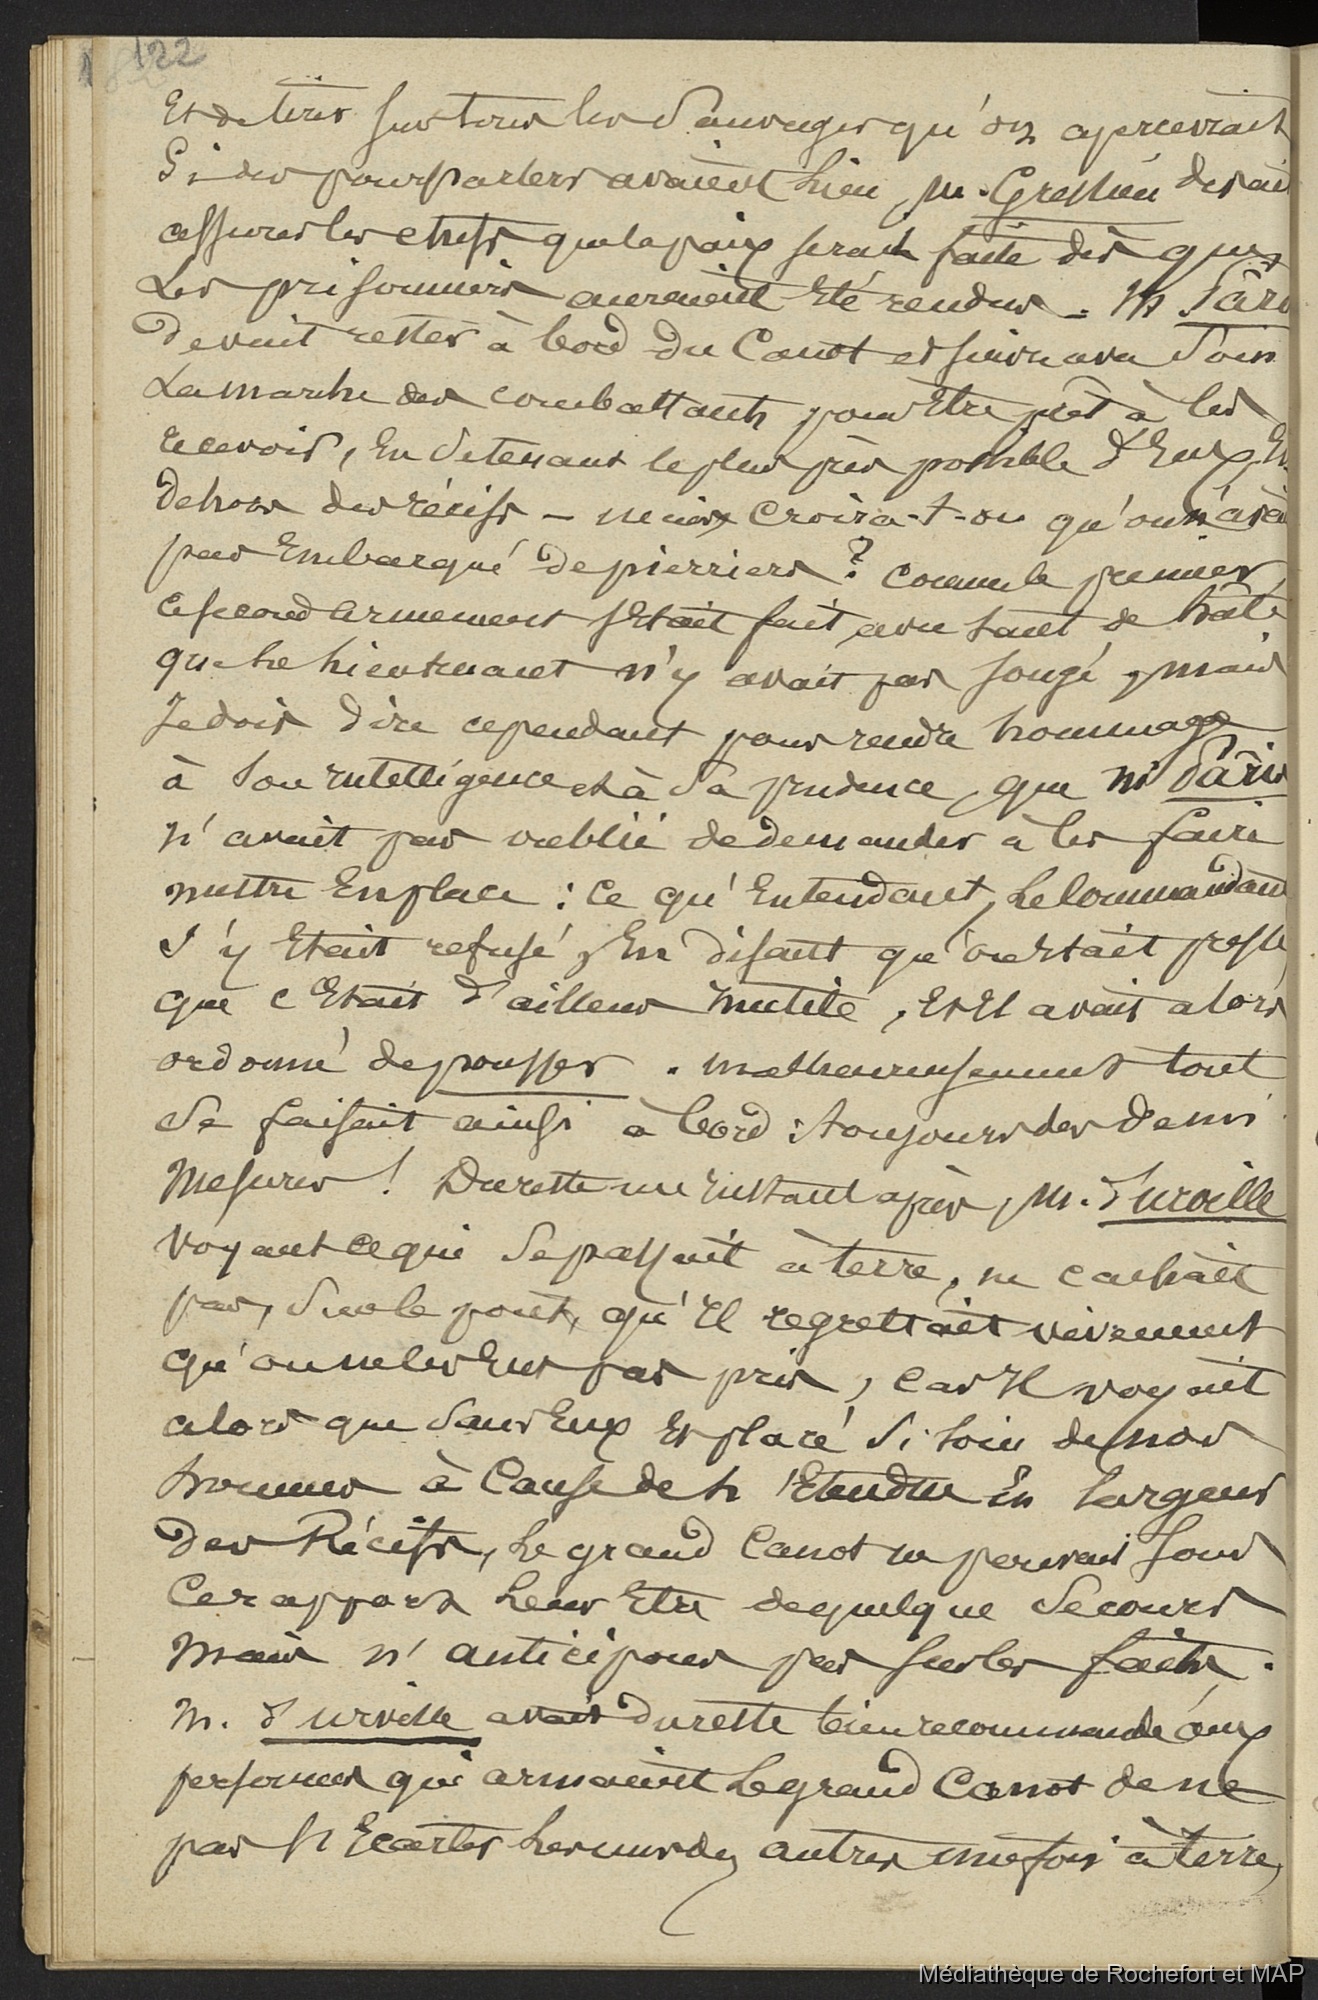 122
Et de tirer sur tous les Sauvages qu'on apercevrait
Si des pourparlers avaient lieu, M. Gressien devait
assurer les chefs que la paix serait faite dès que
Les prisonniers auraient Eté rendus. M Pâris
Devait rester à bord du Canot et suivre avec Soin
La marche des combattants pour Etre prêt à les
recevoir, En se tenant le plus près possible d'Eux, En
dehors des récifs – mais croira-t-on qu'on n'avait
pas Embarqué de pierriers ? comme le premier,
ce second armement s'Etait fait avec tant de hâte
que Le Lieutenant n'y avait pas songé, mais
Je dois dire cependant pour rendre hommage
à Son Intelligence et à Sa prudence, que M Pâris
n'avait pas oublié de demander à les faire
mettre En place : Ce qu'Entendant, Le Commandant
S'y Etait refusé, En disant qu'on Etait pressé
que c'Etait d'ailleurs Inutile, Et Il avait alors
ordonné de pousser. malheureusement tout
Se faisait ainsi à bord : toujours des demi
Mesures ! Du reste un Instant après, M. d'urville
Voyant ce qui Se passait à terre, ne cachait
pas, Sur le pont, qu'Il regrettait vivement
qu'on ne les Eut pas pris, car Il voyait
alors que Sans Eux Et placé Si loin de nos
hommes à Cause de L'Etendue En largeur
Des Récifs, Le grand Canot ne pouvait Sous
Ce rapport Leur Etre de quelque Secours
Mais n'anticipons pas sur les faits.
M. d'urville avait du reste bien recommandé aux
personnes qui armaient Le grand Canot de ne
pas s'Ecarter Les uns des autres une fois à terre,
Médiathèque de Rochefort et MAP